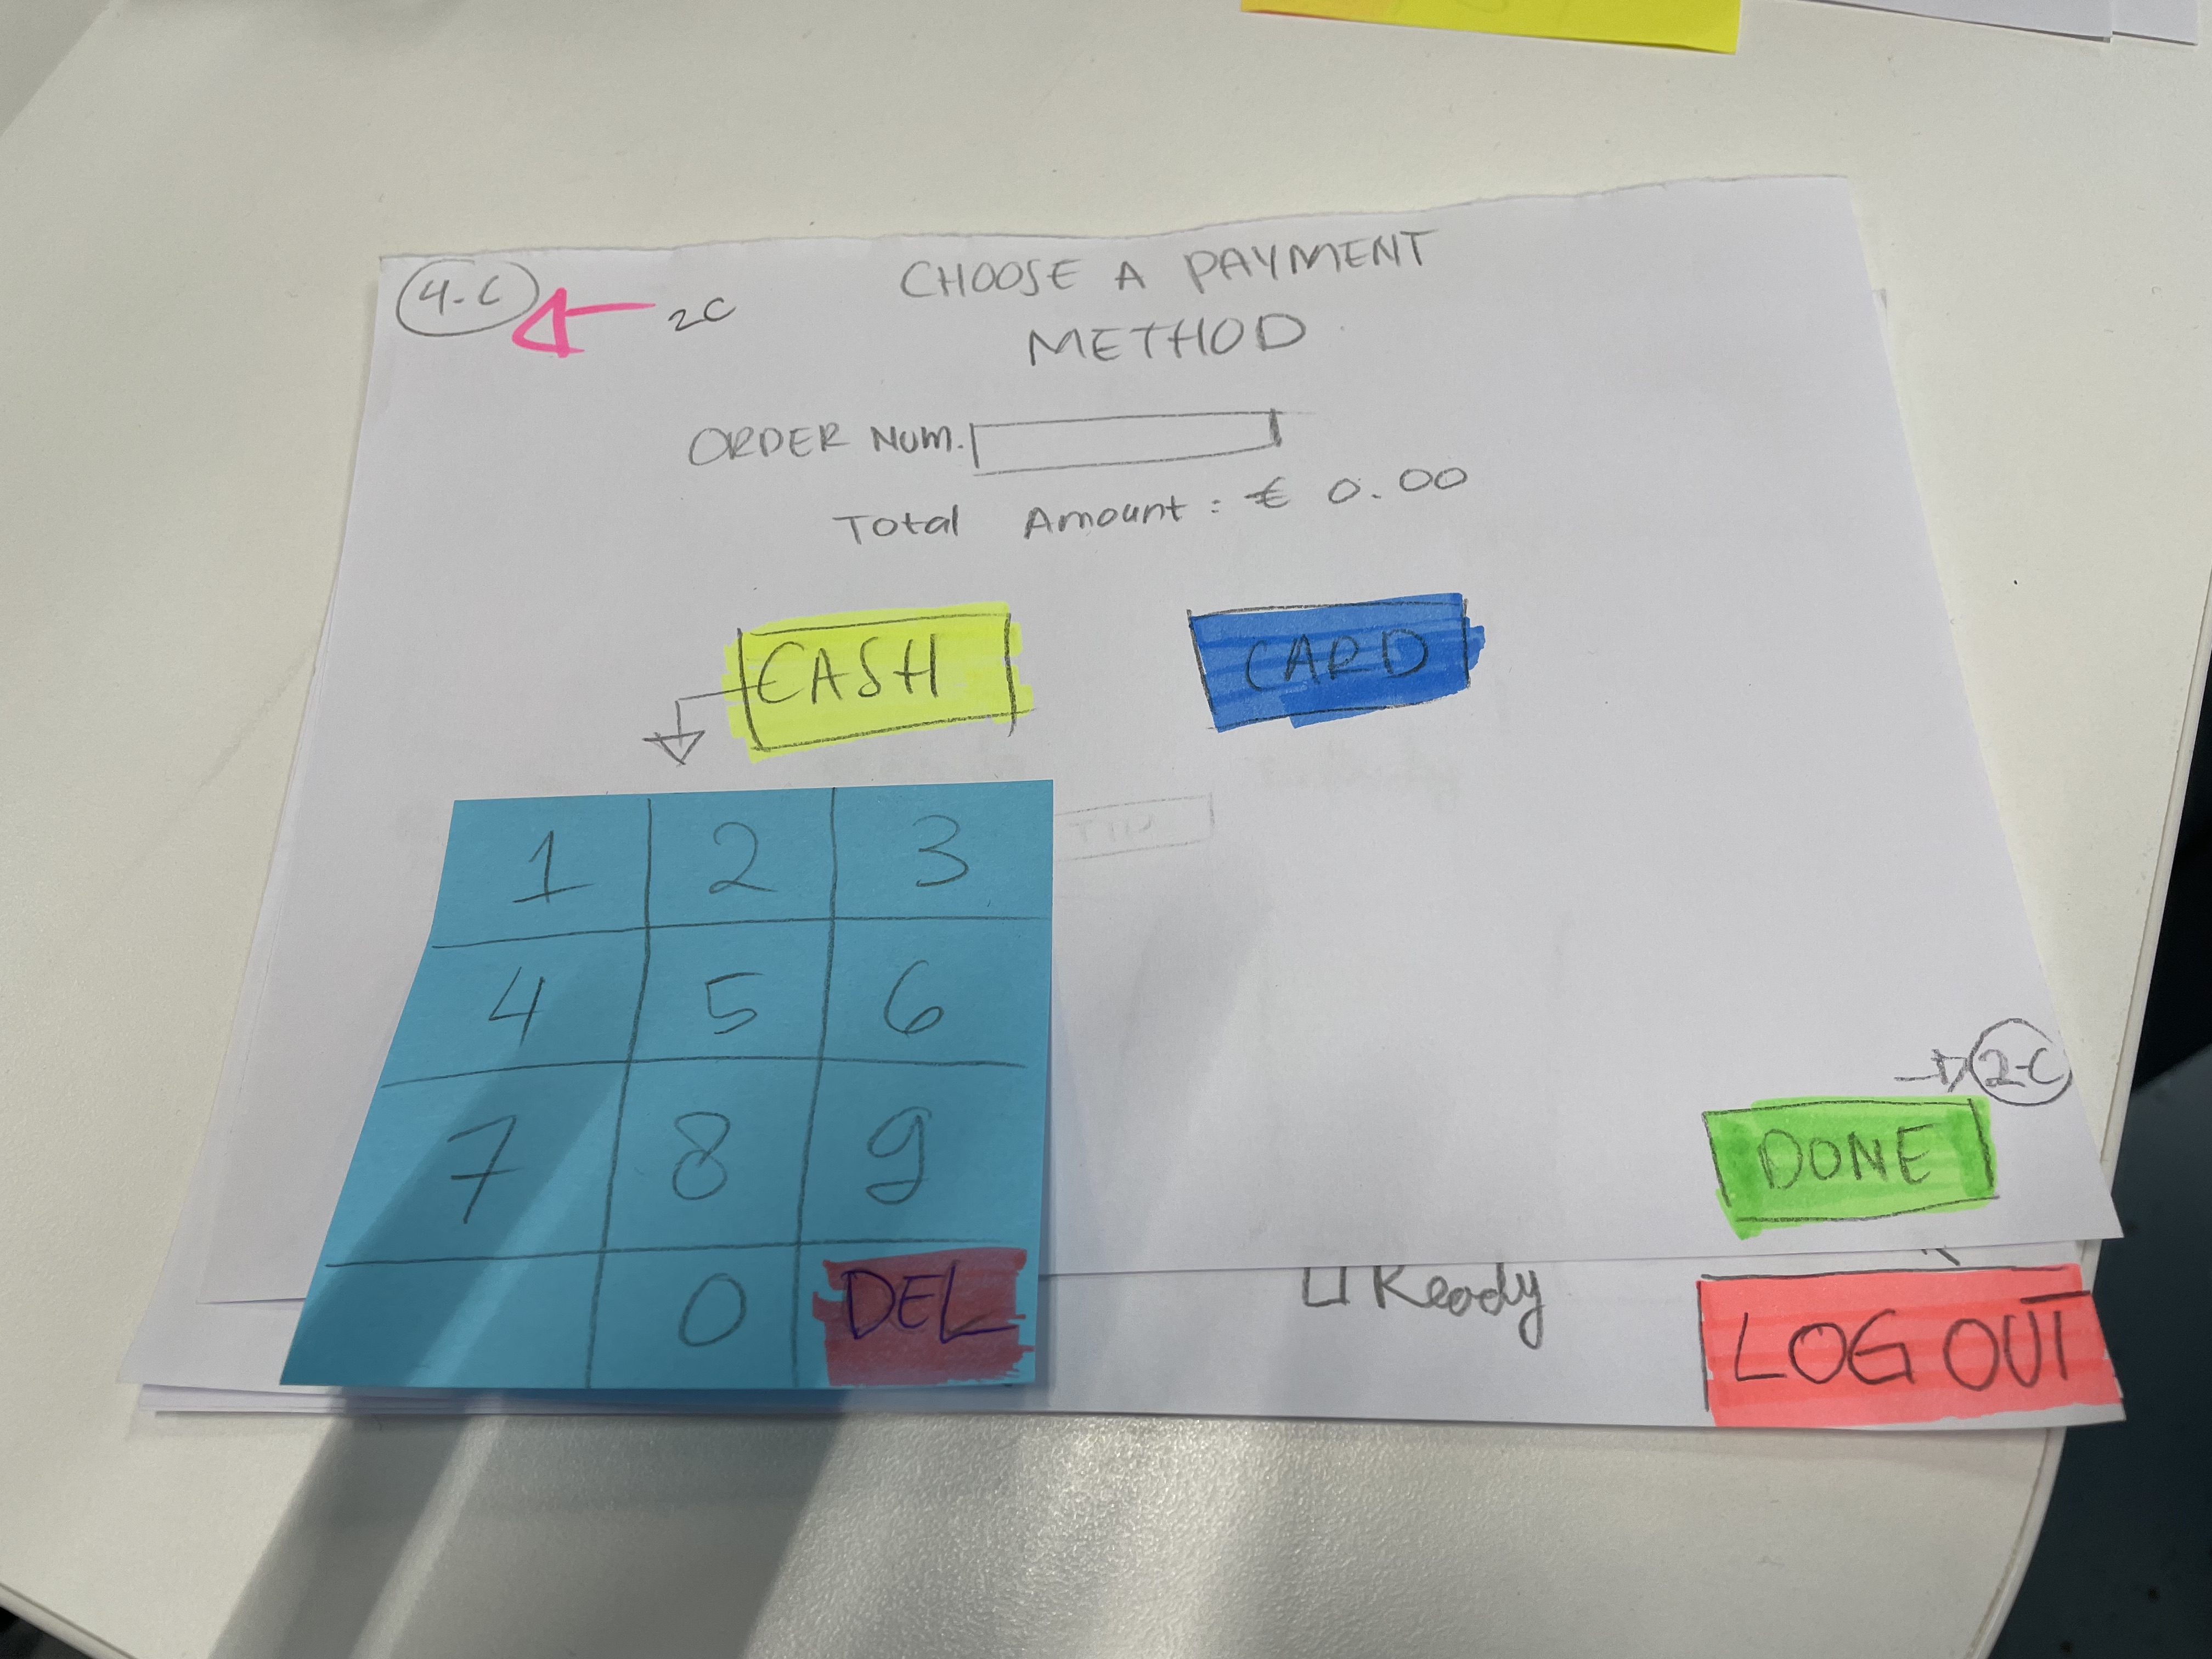 4-C
2C
CHOOSE A PAYMENT
METHOD
ORDER Num.
Total Amount: € 0.00
CASH
CARD
1 2 3
4 5 6
7 8 9
0 DEL
2-C
DONE
Ready
LOG OUT